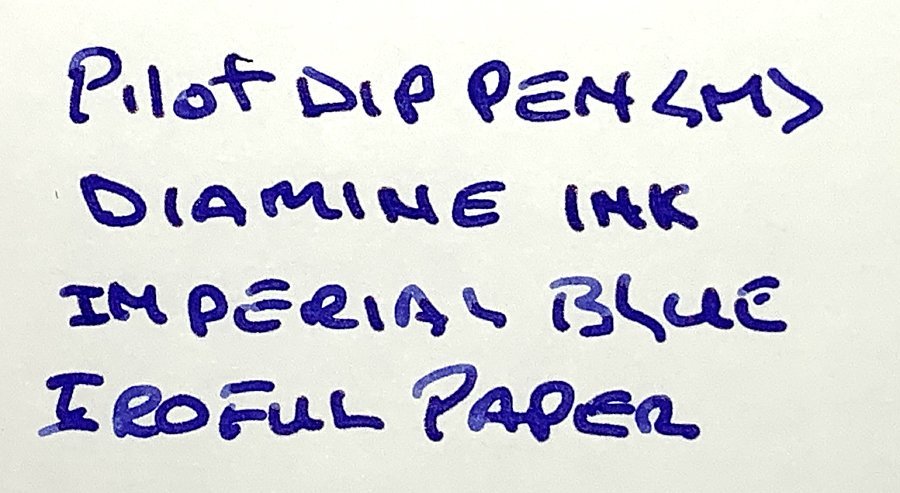 Pilot DIP PEN <M>
DIAMINE INK
IMPERIAL BLUE
IROFUL PAPER